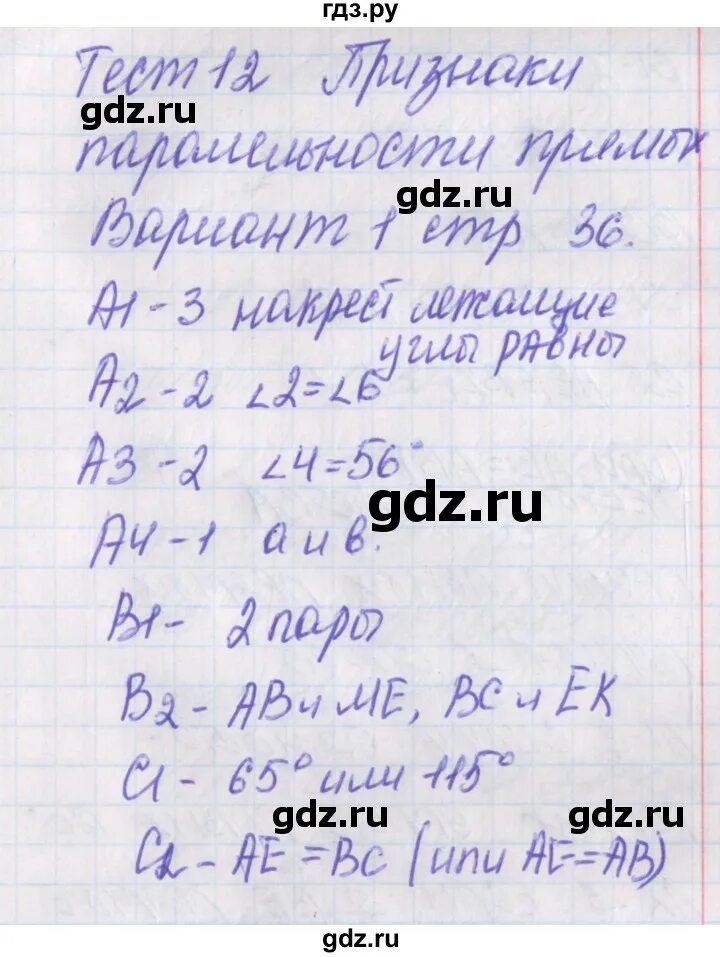 гдз.ру
Тест 12 Признаки
gdz.ru
паролельности прямых
gdz.ru
Вариант 1 стр 36.
А1 - 3 накрест лежащие
углы равны
А2 - 2 ∠2=∠6
А3 - 2 ∠4=56°
gdz.ru
А4 - 1 а и в.
В1 - 2 пары
В2 - АВ и МЕ, ВС и ЕК
С1 - 65° или 115°
gdz.ru gdz.ru
С2 - АЕ = ВС (или АЕ = АВ)
gdz.ru